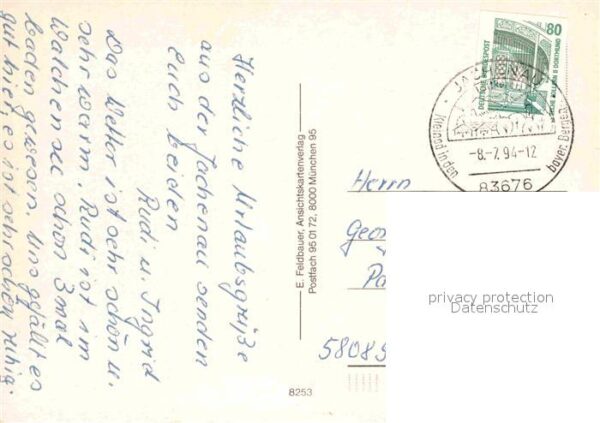 Herzliche Urlaubsgrüße
aus der Jachenau senden
Euch beiden
Rudi u. Ingrid
Das Wetter ist sehr schön u.
sehr warm. Rudi ist im
Walchensee schon 3 mal
baden gewesen. Uns gefällt es
gut hier, es ist sehr schön ruhig.
E. Feldbauer, Ansichtskartenverlag
Postfach 95 01 72, 8000 München 95
8253
80
DEUTSCHE BUNDESPOST
ZECHE ZOLLERN II DORTMUND
JACHENAU
Kleinod in den
bayer. Bergen
-8.-7.94-12
83676
Herrn
Geor
58089
privacy protection
Datenschutz